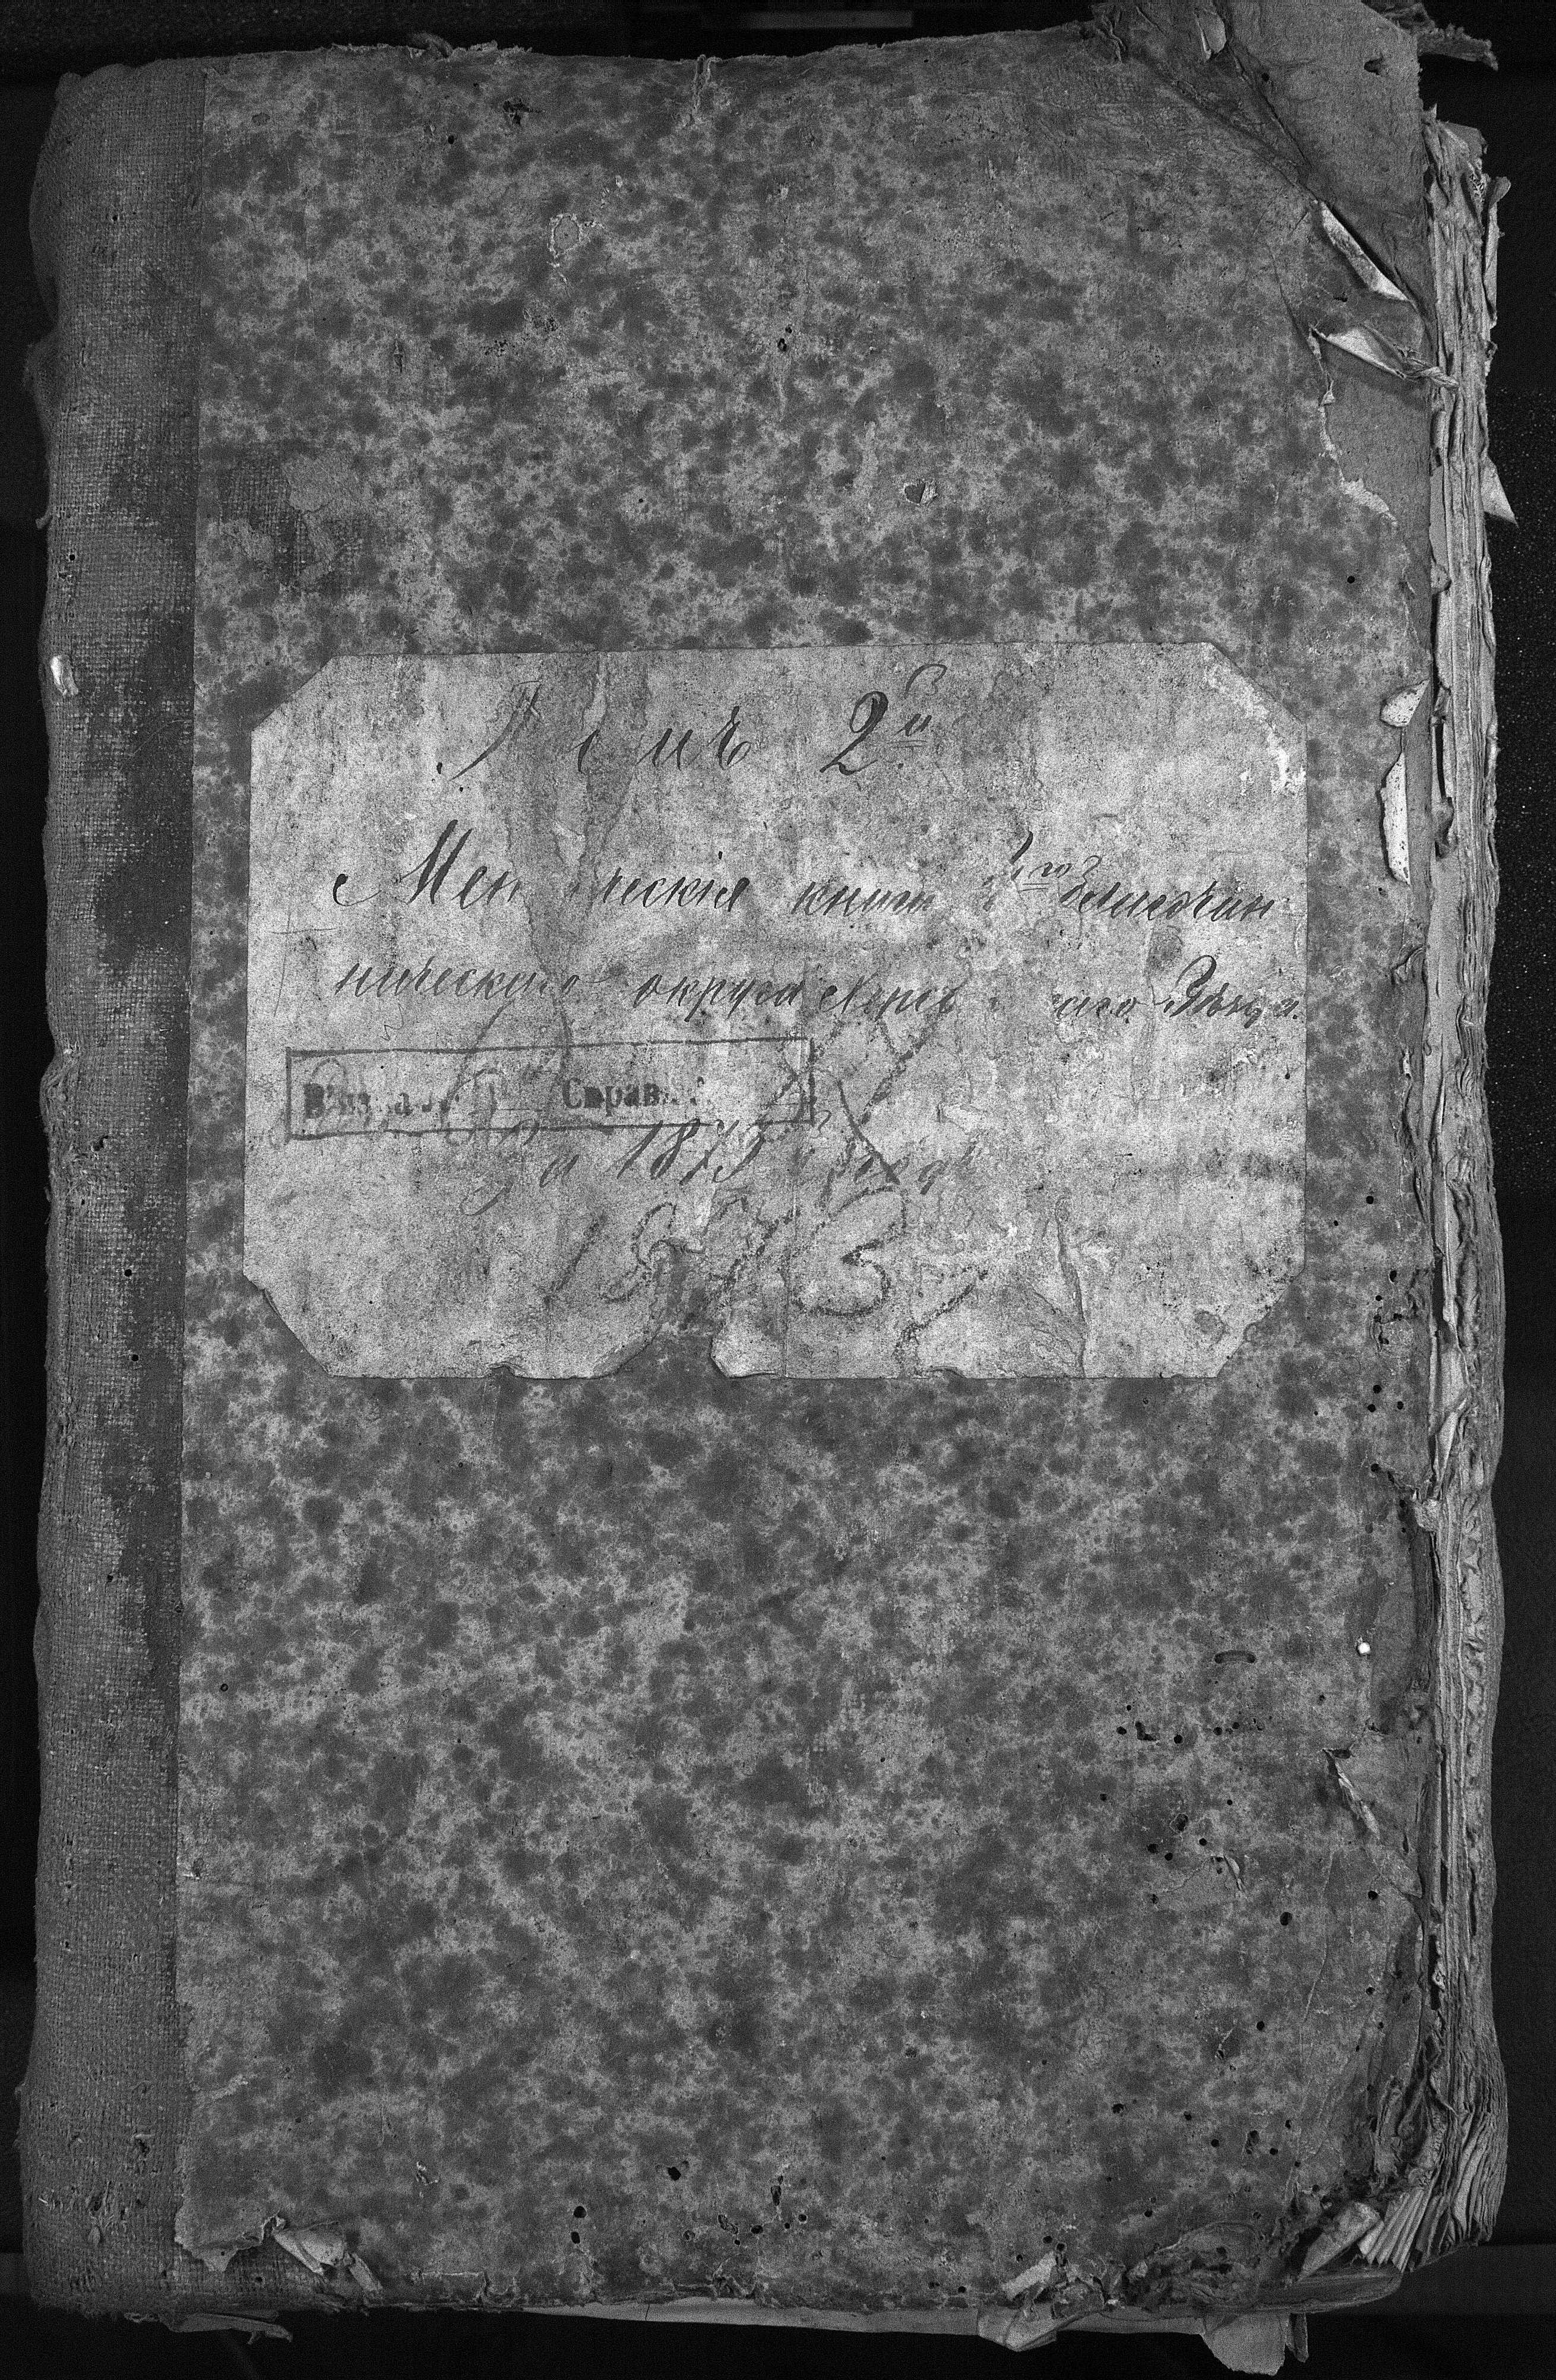 Томъ 2й
Метрическія книги 1го благочин
ническаго округа Херсонскаго Уѣзда.
Справ
за 1873 годъ
1873